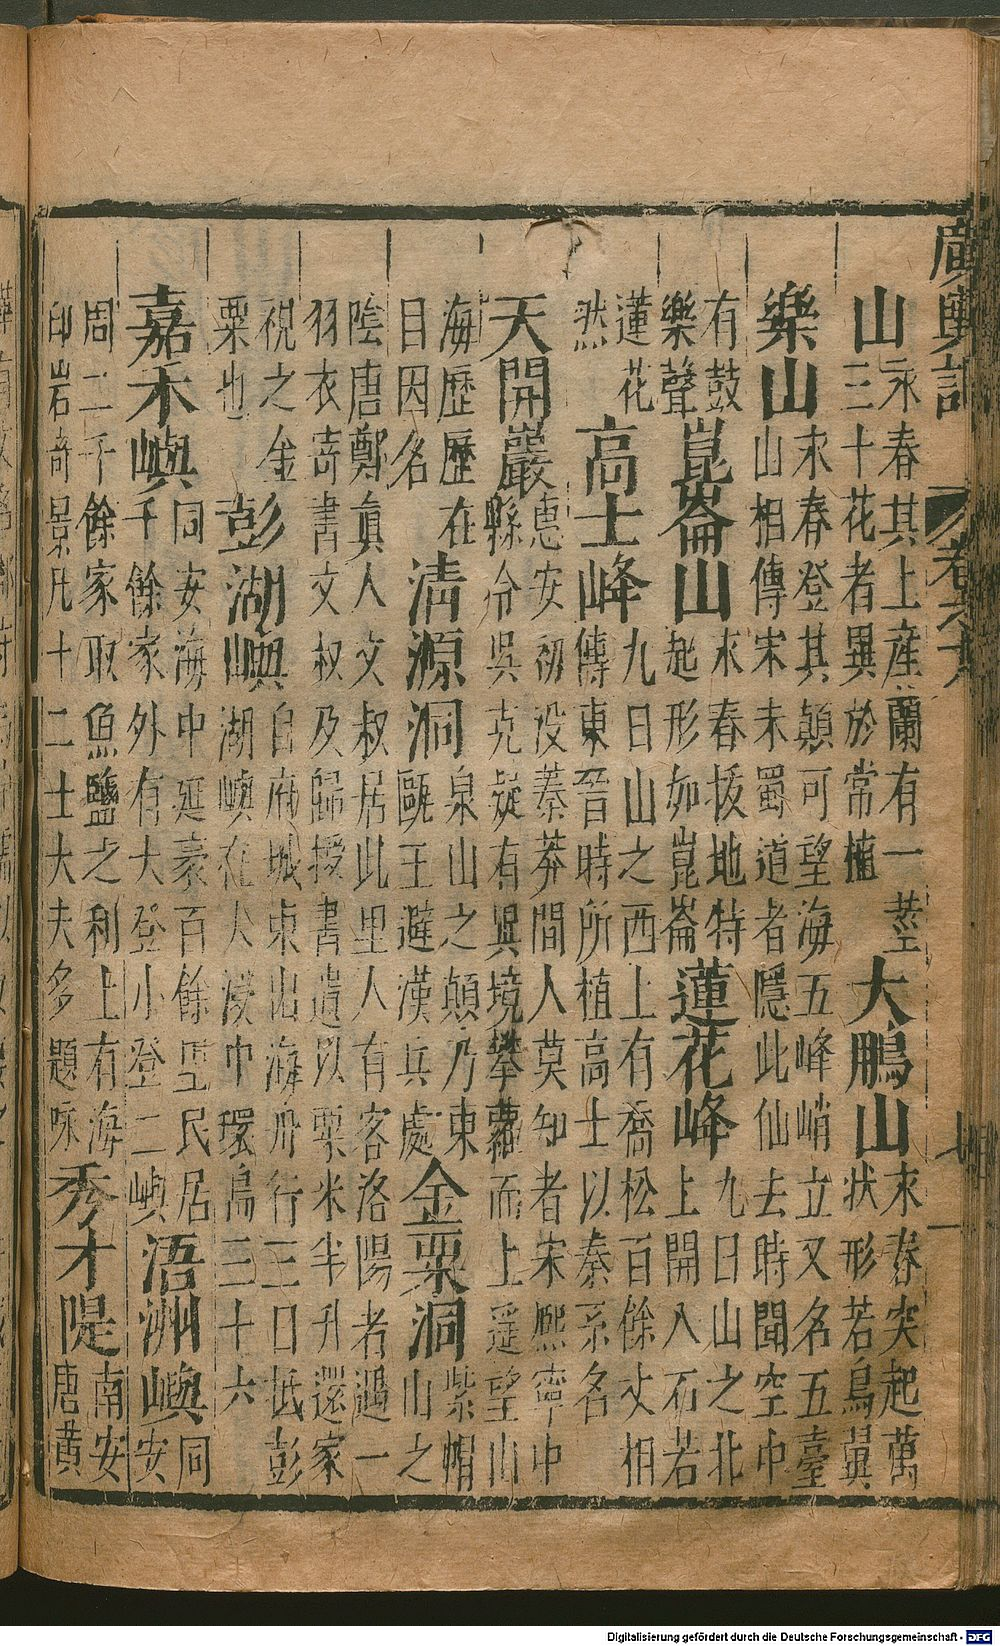 廣輿記 卷之十八 七
山 永春其上產蘭有一莖
三十花者異於常植 大鵬山 永春突起萬
狀形若鳥翼
樂山 永春登其顛可望海五峰峭立又名五臺
山相傳宋末蜀道者隱此仙去時聞空中
有鼓
樂聲 崑崙山 永春拔地特
起形如崑崙 蓮花峰 九日山之北
上開八石若
蓮花
然 高士峰 九日山之西上有喬松百餘丈相
傳東晉時所植高士以秦系名
天開巖 惠安初没蓁莽間人莫知者宋熙寧中
縣令吳克疑有異境攀蘿而上遥望山
海歷歷在
目因名 清源洞 泉山之顛乃東
甌王避漢兵處 金粟洞 紫帽
山之
陰唐鄭真人文叔居此里人有客洛陽者遇一
羽衣寄書文叔及歸授書遺以粟米半升還家
視之金
粟也 彭湖嶼 自府城東出海舟行三日抵彭
湖嶼在大浸中環島三十六
嘉禾嶼 同安海中延袤百餘里民居
千餘家外有大登小登二嶼 浯洲嶼 同
安
周二千餘家取魚鹽之利上有海
印岩奇景凡十二士大夫多題咏 秀才隄 南安
唐黃
Digitalisierung gefördert durch die Deutsche Forschungsgemeinschaft - DFG